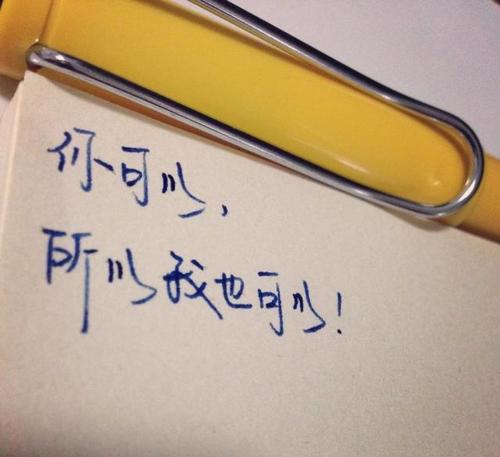 你可以,
所以我也可以!